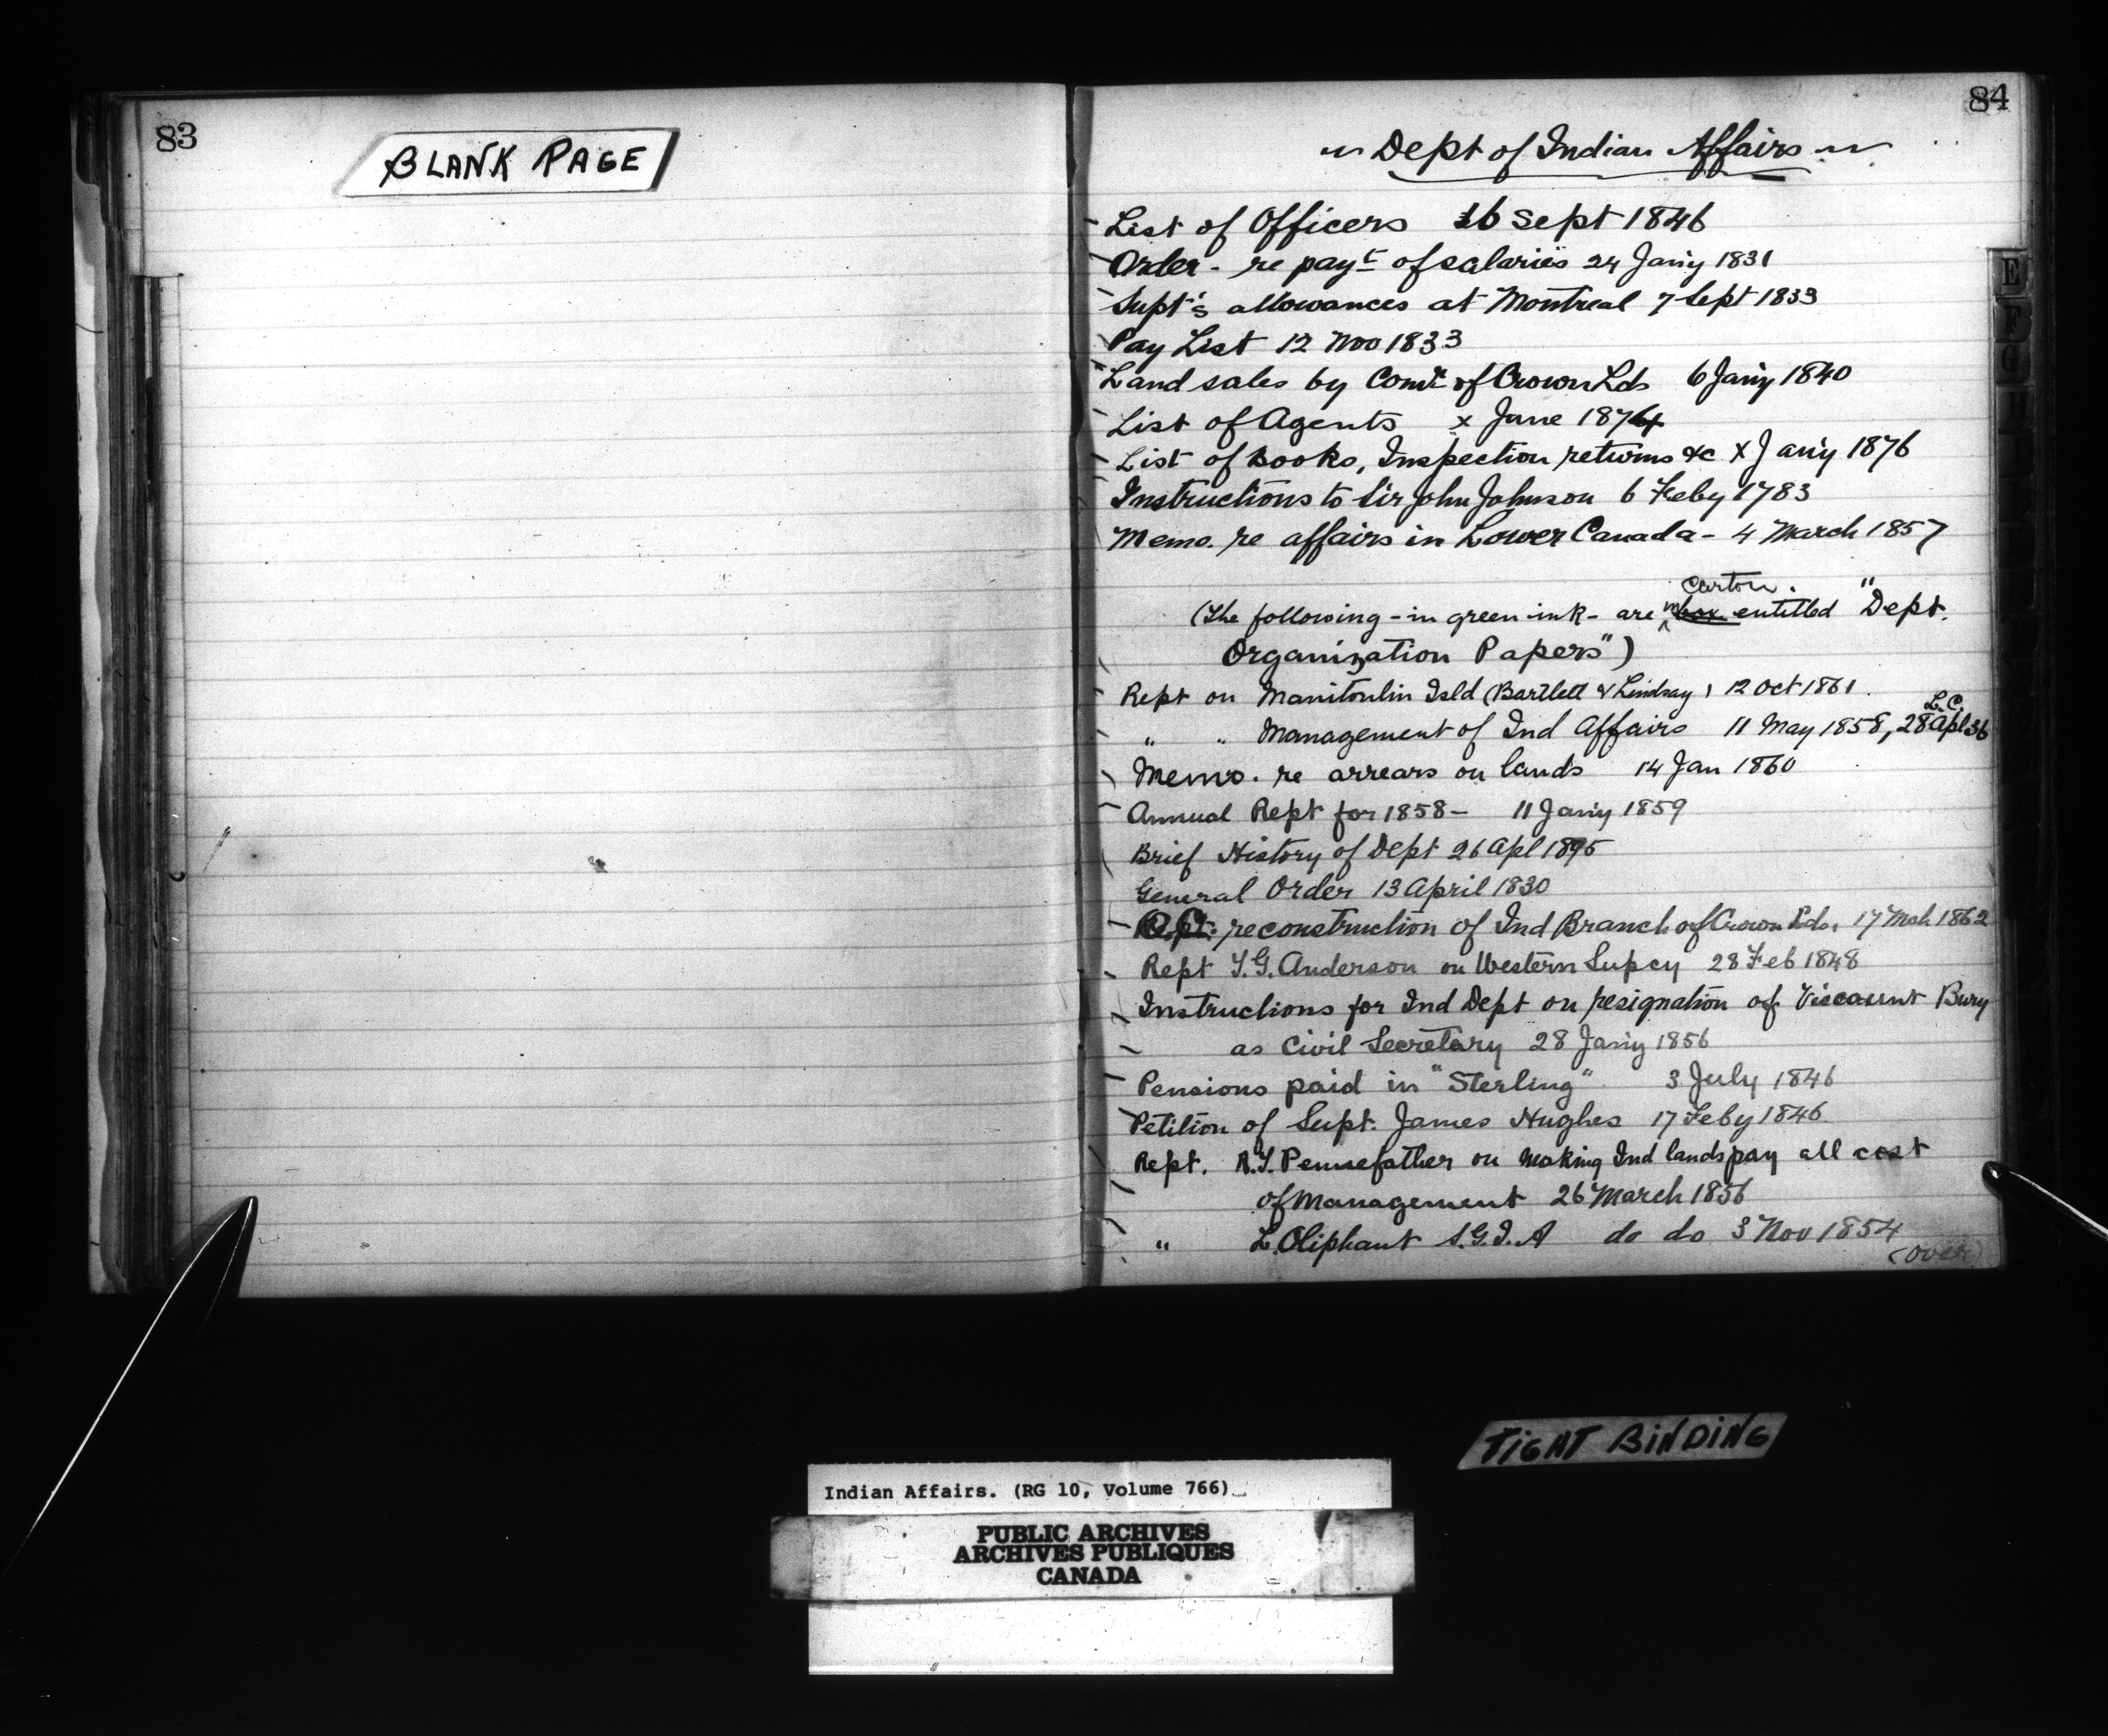 83
BLANK PAGE
84
Dept of Indian Affairs
List of Officers 16 Sept 1846
Order - re payt of salaries 24 Jany 1831
Supt's allowances at Montreal 7 Sept 1833
Pay List 12 Nov 1833
Land sales by Comr of Crown Lds 6 Jany 1840
List of Agents x June 1874
List of books, Inspection returns &c x Jany 1876
Instructions to Sir John Johnson 6 Feby 1783
Memo. re affairs in Lower Canada - 4 March 1857
carton.
(The following - in green ink - are in box entitled "Dept.
Organization Papers")
Rept on Manitoulin Isld (Bartlett & Lindsay) 12 Oct 1861.
L.C.
" " Management of Ind Affairs 11 May 1858, 28 Apl 36
Memo. re arrears on lands 14 Jan 1860
Annual Rept for 1858 - 11 Jany 1859
Brief History of Dept 26 Apl 1895
General Order 13 April 1830
reconstruction of Ind Branch of Crown Lds, 17 Mch 1862
Rept T.G. Anderson on Western Supcy 28 Feb 1848
Instructions for Ind Dept on resignation of Viscount Bury
as Civil Secretary 28 Jany 1856
Pensions paid in "Sterling" 3 July 1846
Petition of Supt. James Hughes 17 Feby 1846
Rept. R.T. Pennefather on making Ind lands pay all cost
of management 26 March 1856
" L. Oliphant S.G.I.A do do 3 Nov 1854
(over)
E
F
G
H
TIGHT BINDING
Indian Affairs. (RG 10, Volume 766)
PUBLIC ARCHIVES
ARCHIVES PUBLIQUES
CANADA